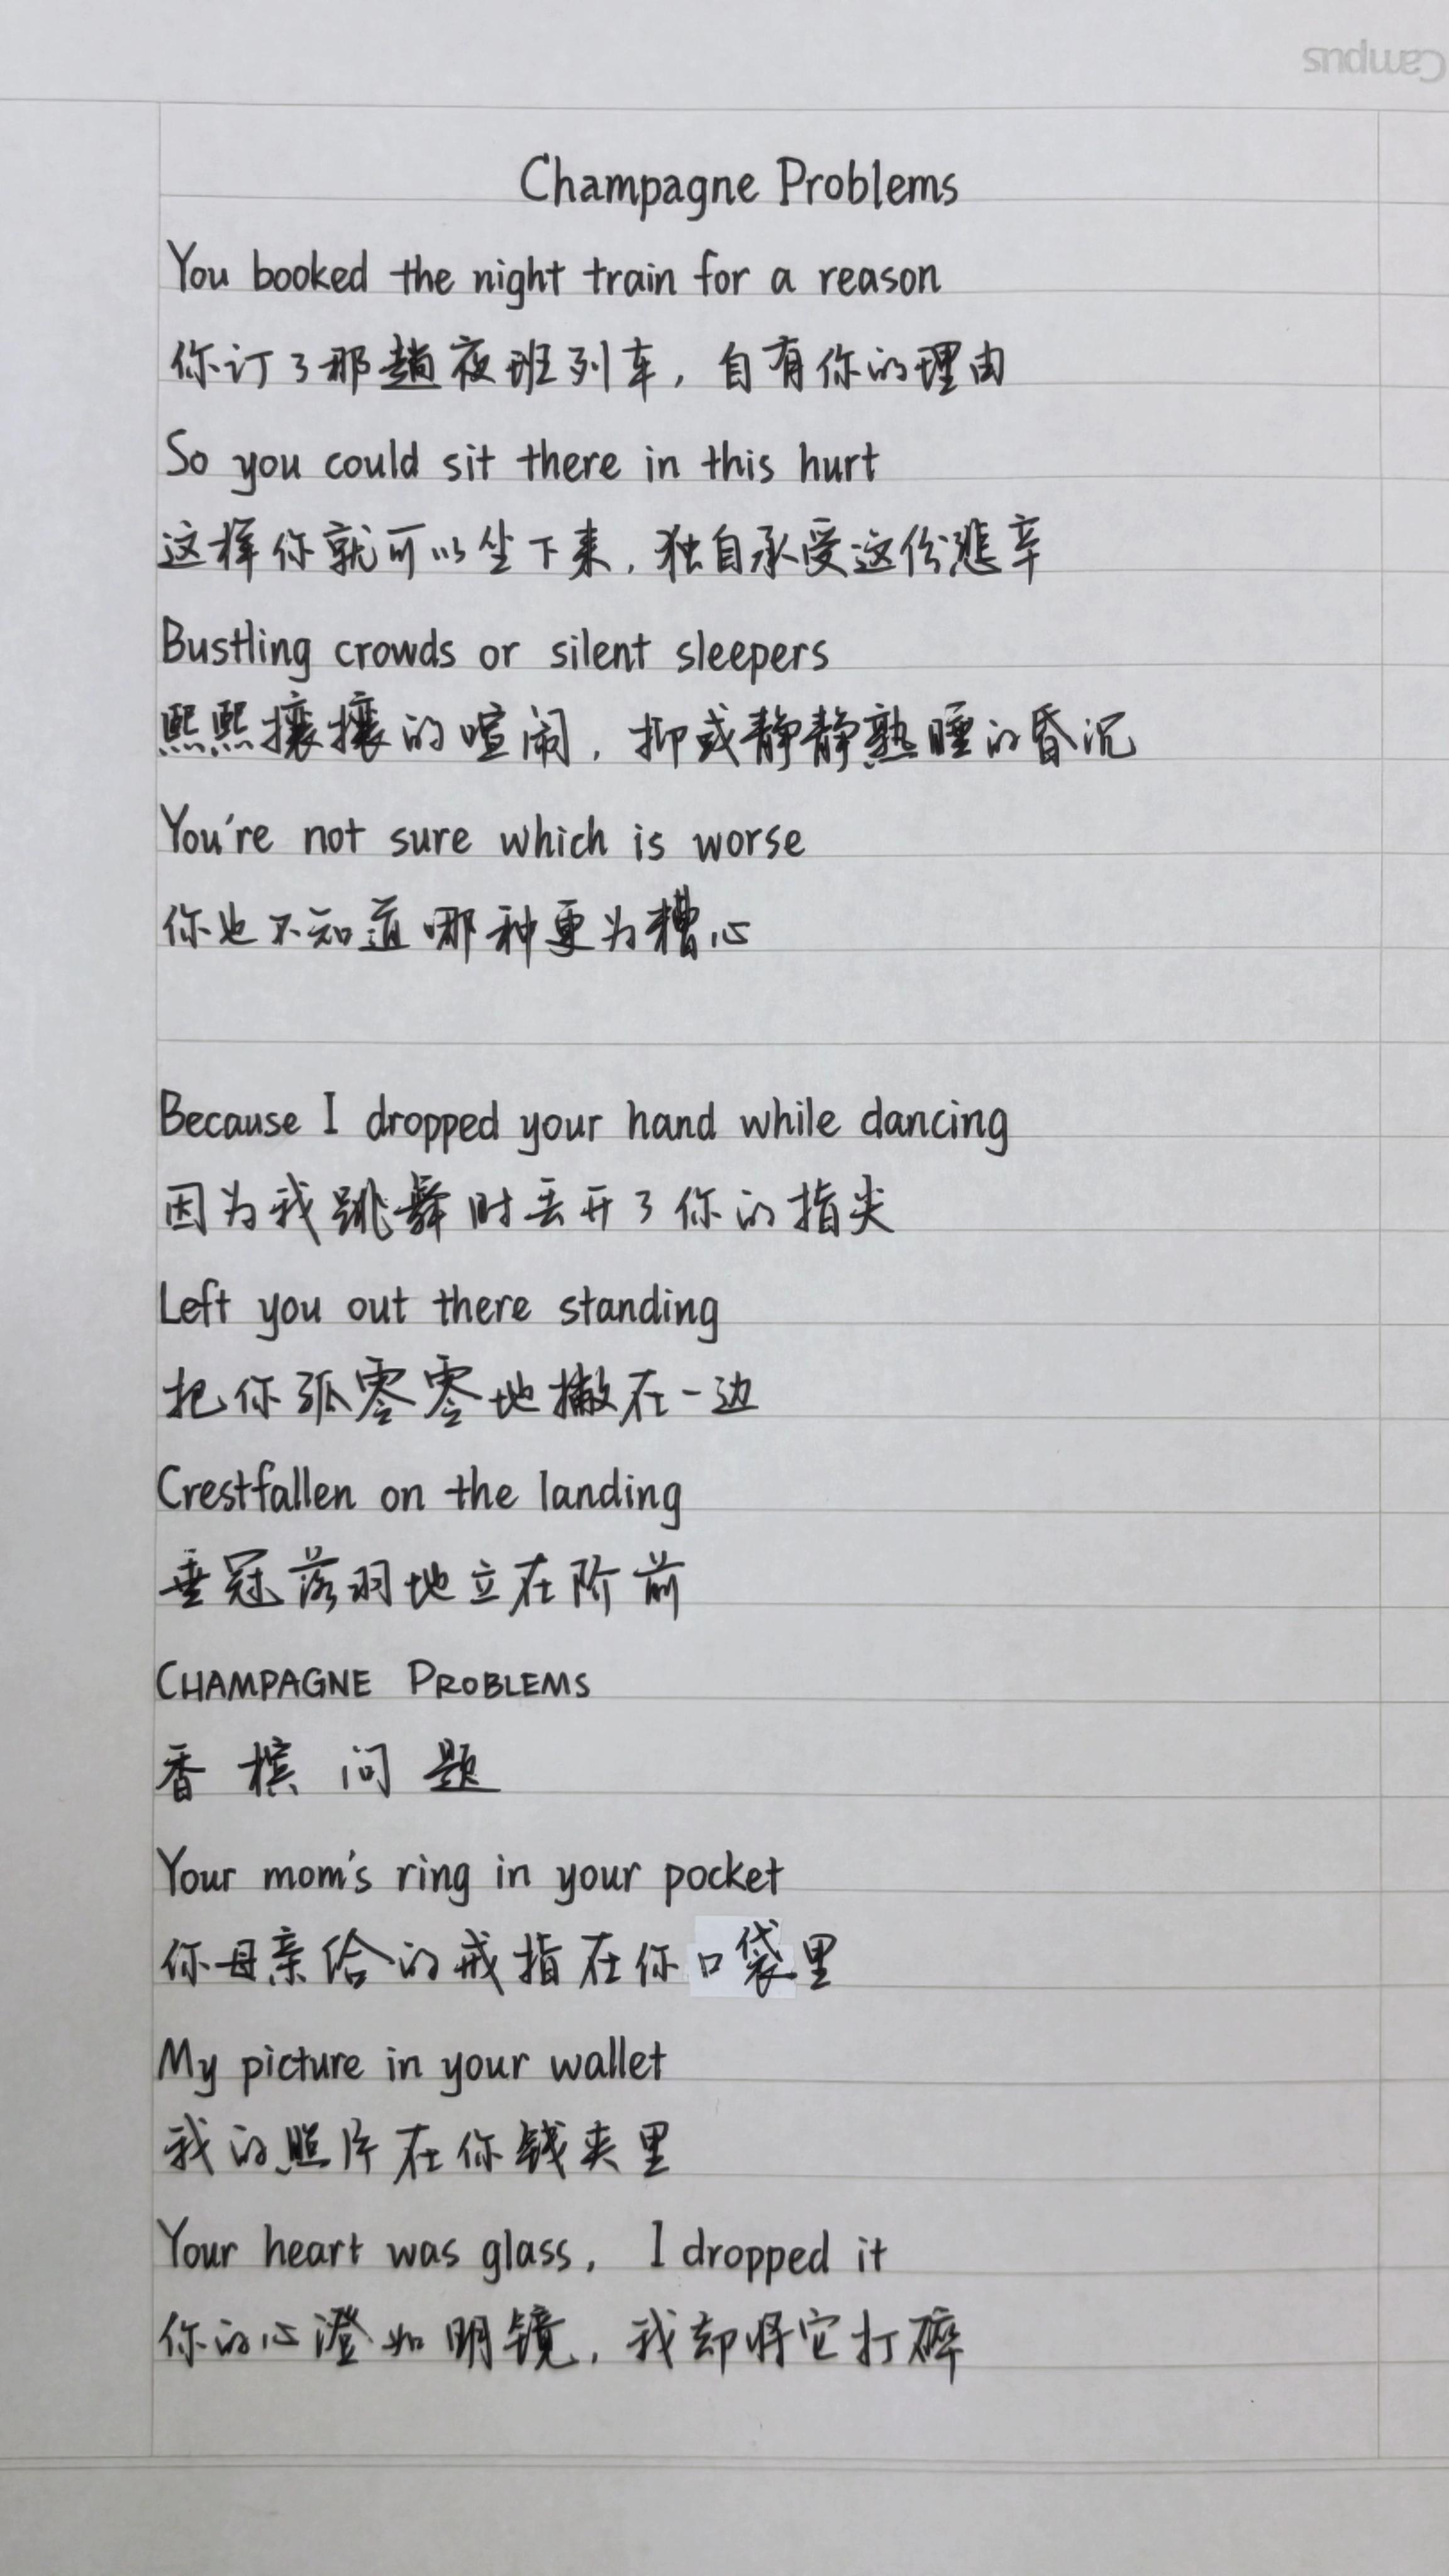 Campus
Champagne Problems
You booked the night train for a reason
你订了那趟夜班列车，自有你的理由
So you could sit there in this hurt
这样你就可以坐下来，独自承受这份悲辛
Bustling crowds or silent sleepers
熙熙攘攘的喧闹，抑或静静熟睡的昏沉
You're not sure which is worse
你也不知道哪种更为糟心
Because I dropped your hand while dancing
因为我跳舞时丢开了你的指尖
Left you out there standing
把你孤零零地撇在一边
Crestfallen on the landing
垂冠落羽地立在阶前
CHAMPAGNE PROBLEMS
香槟问题
Your mom's ring in your pocket
你母亲给的戒指在你口袋里
My picture in your wallet
我的照片在你钱夹里
Your heart was glass, I dropped it
你的心澄如明镜，我却将它打碎